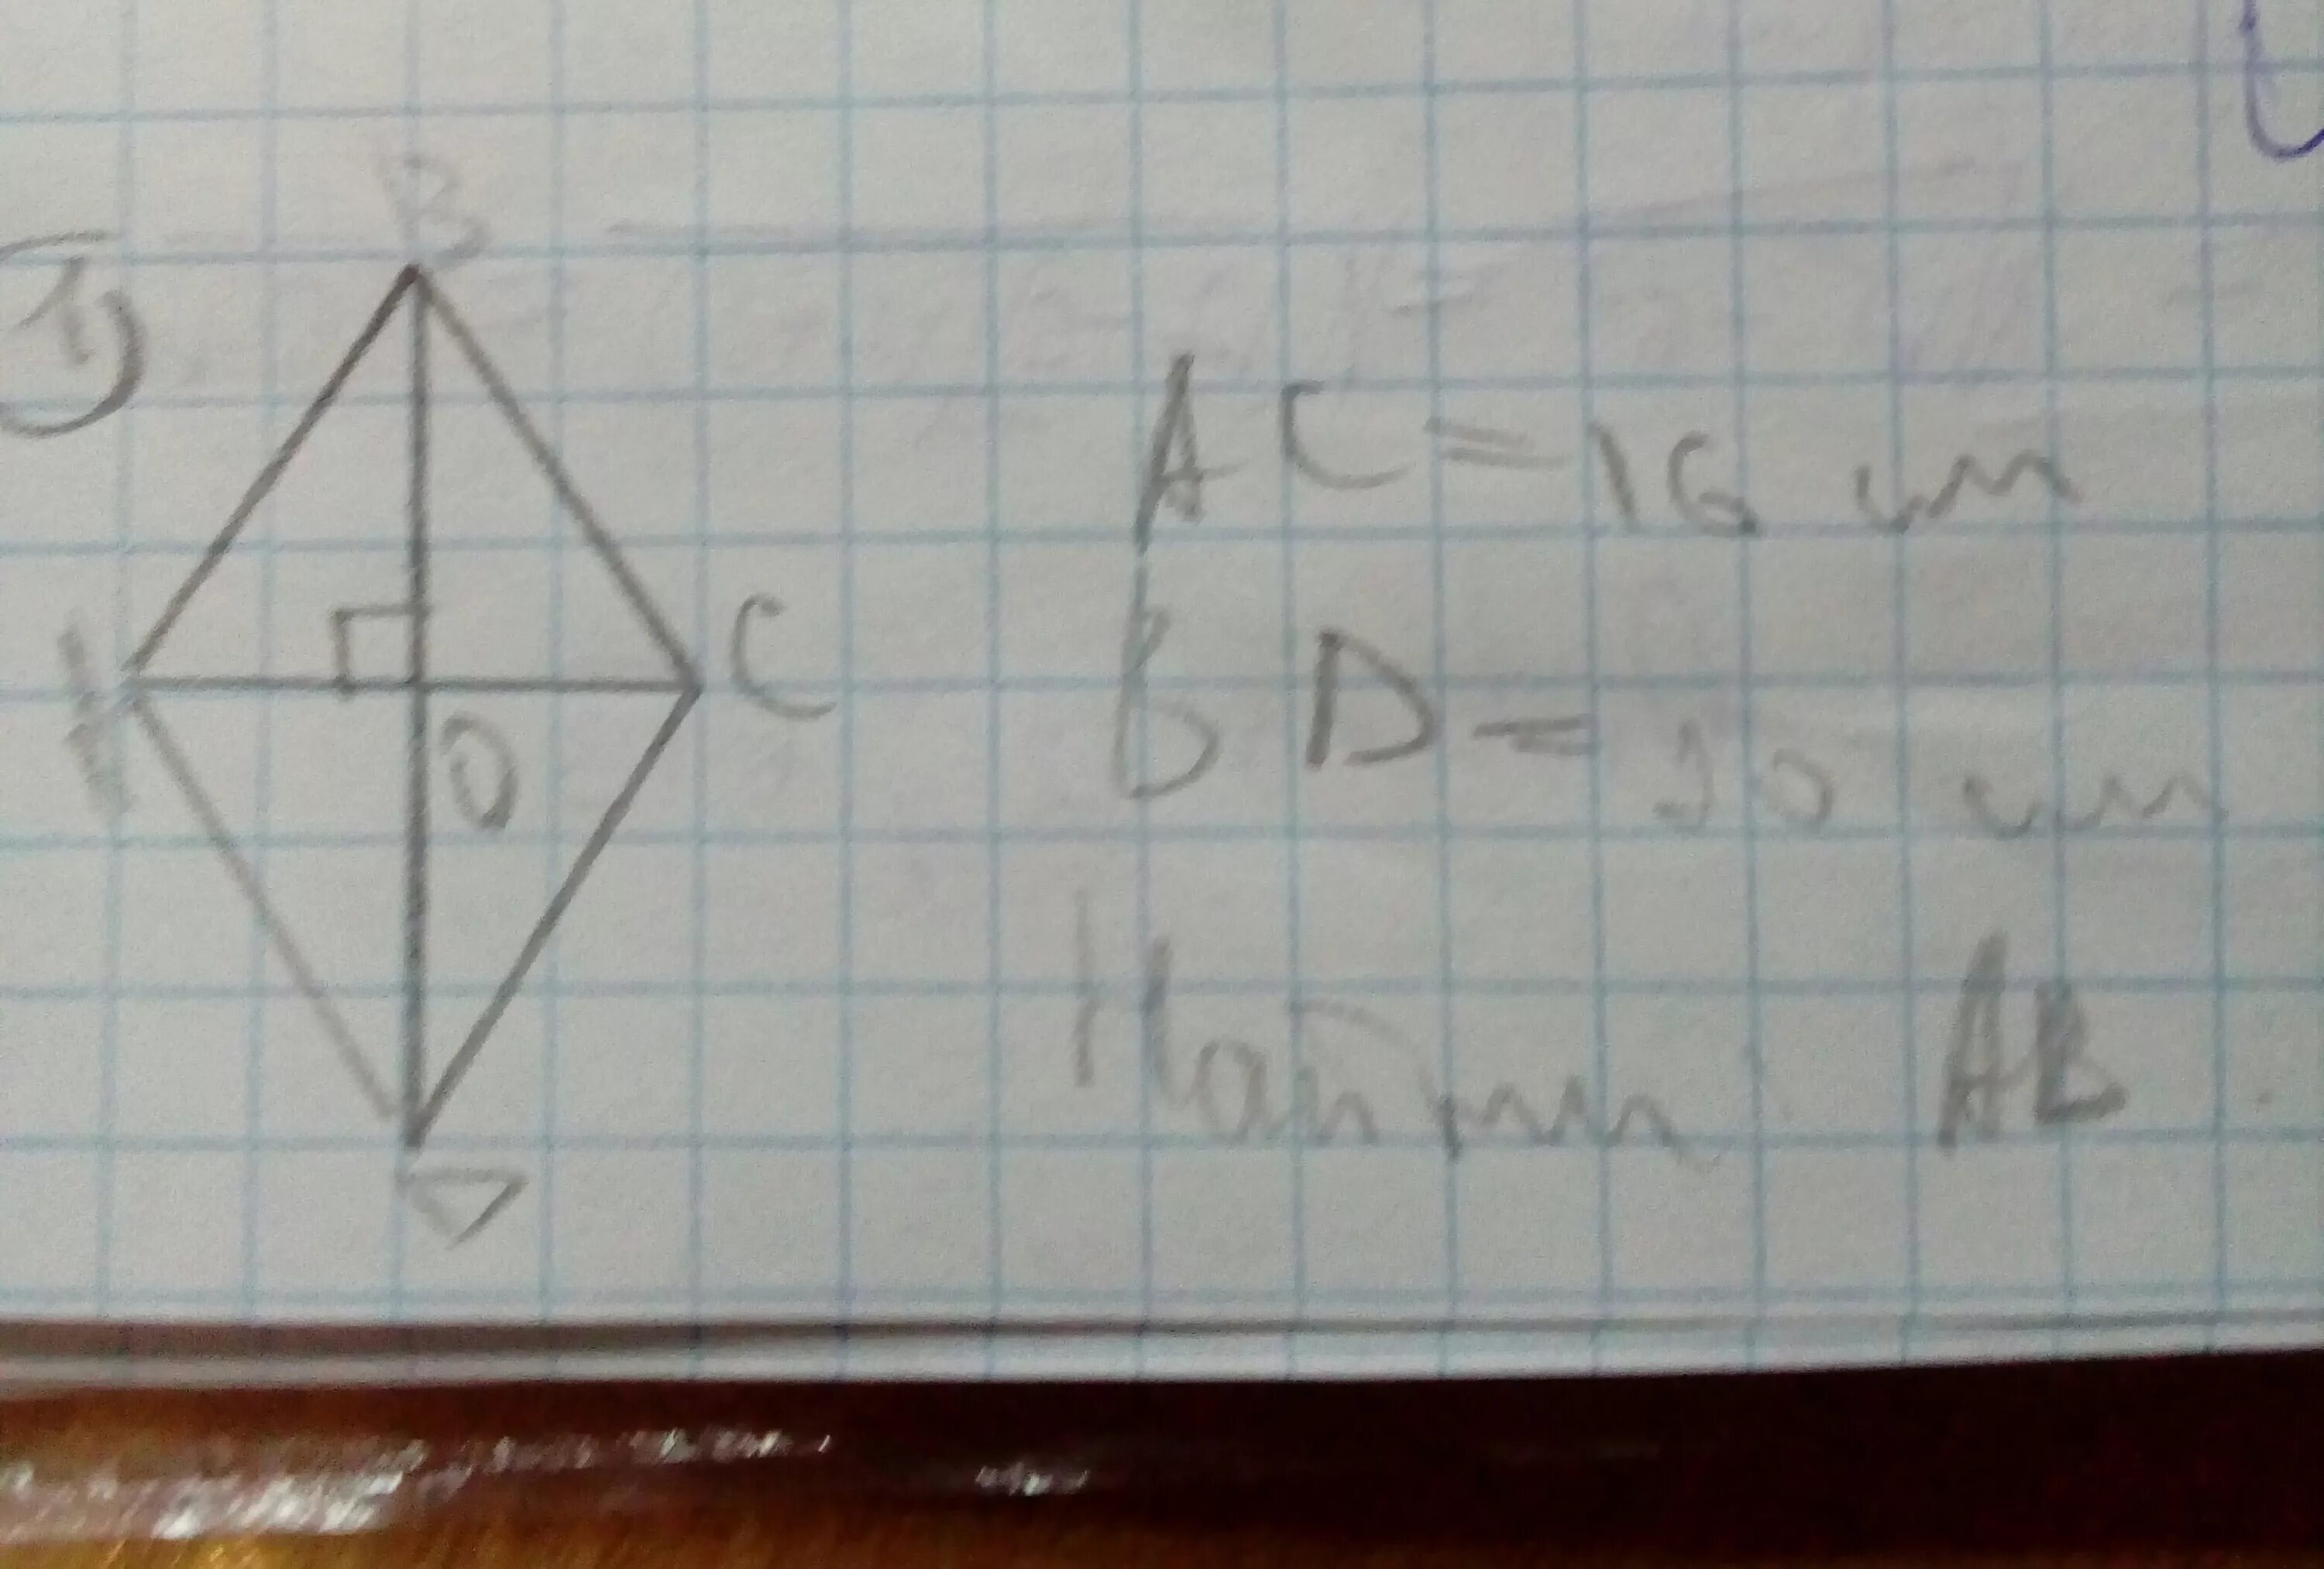 1)
B
A
C
O
D
AC = 16 см
BD = 30 см
Найти AB.